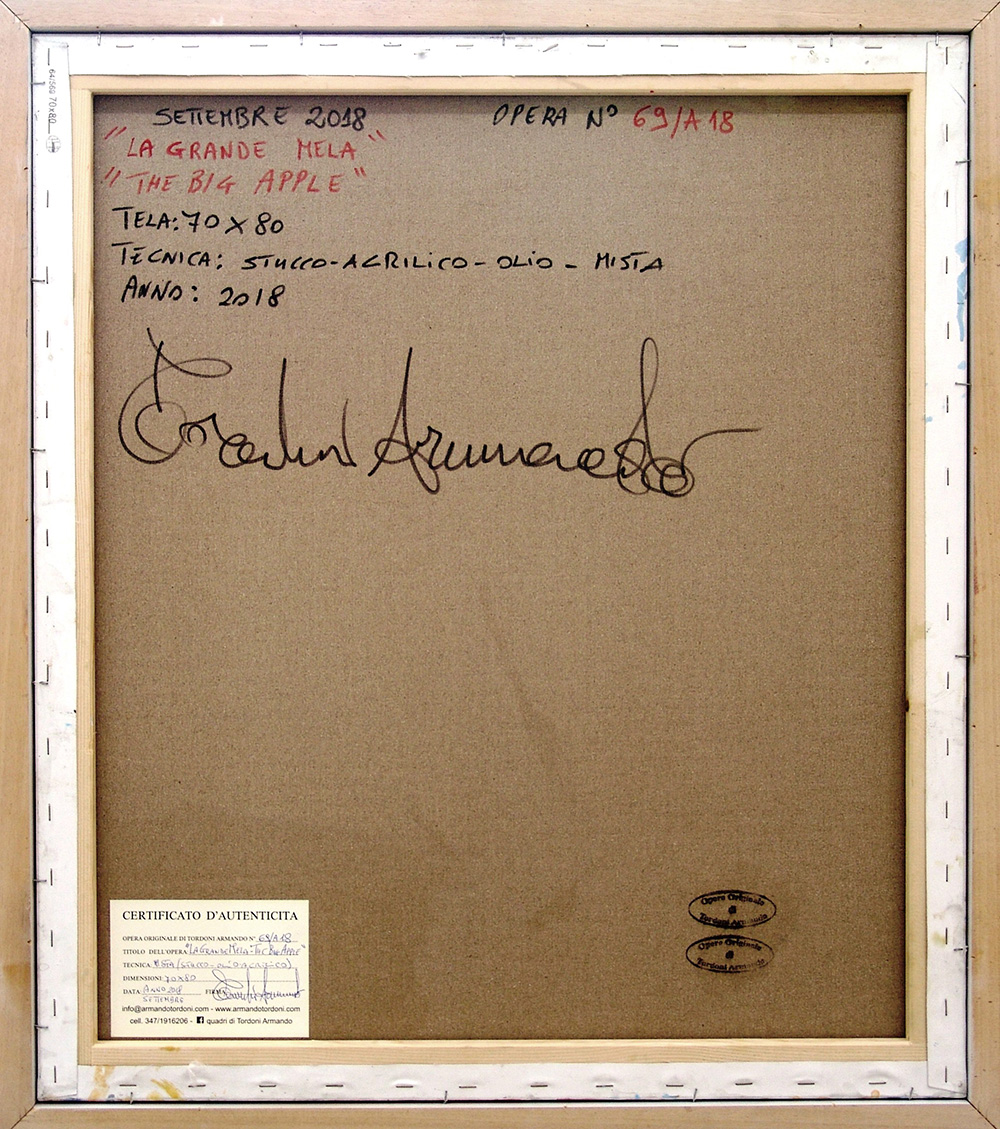 SETTEMBRE 2018 OPERA Nº 69/A18
"LA GRANDE MELA"
"THE BIG APPLE"
TELA: 70X80
TECNICA: STUCCO-ACRILICO-OLIO-MISTA
ANNO: 2018
Tordoni Armando
70x80
CERTIFICATO D'AUTENTICITA
OPERA ORIGINALE DI TORDONI ARMANDO Nº 69/A18
TITOLO DELL'OPERA "LA GRANDE MELA-THE BIG APPLE"
TECNICA MISTA (STUCCO-OLIO
DIMENSIONI 70X80
DATA ANNO 2018 FIRMA
SETTEMBRE
info@armandotordoni.com - www.armandotordoni.com
cell. 347/1916206 - quadri di Tordoni Armando
Opera Originale
di
Tordoni Armando
Opera Originale
di
Tordoni Armando